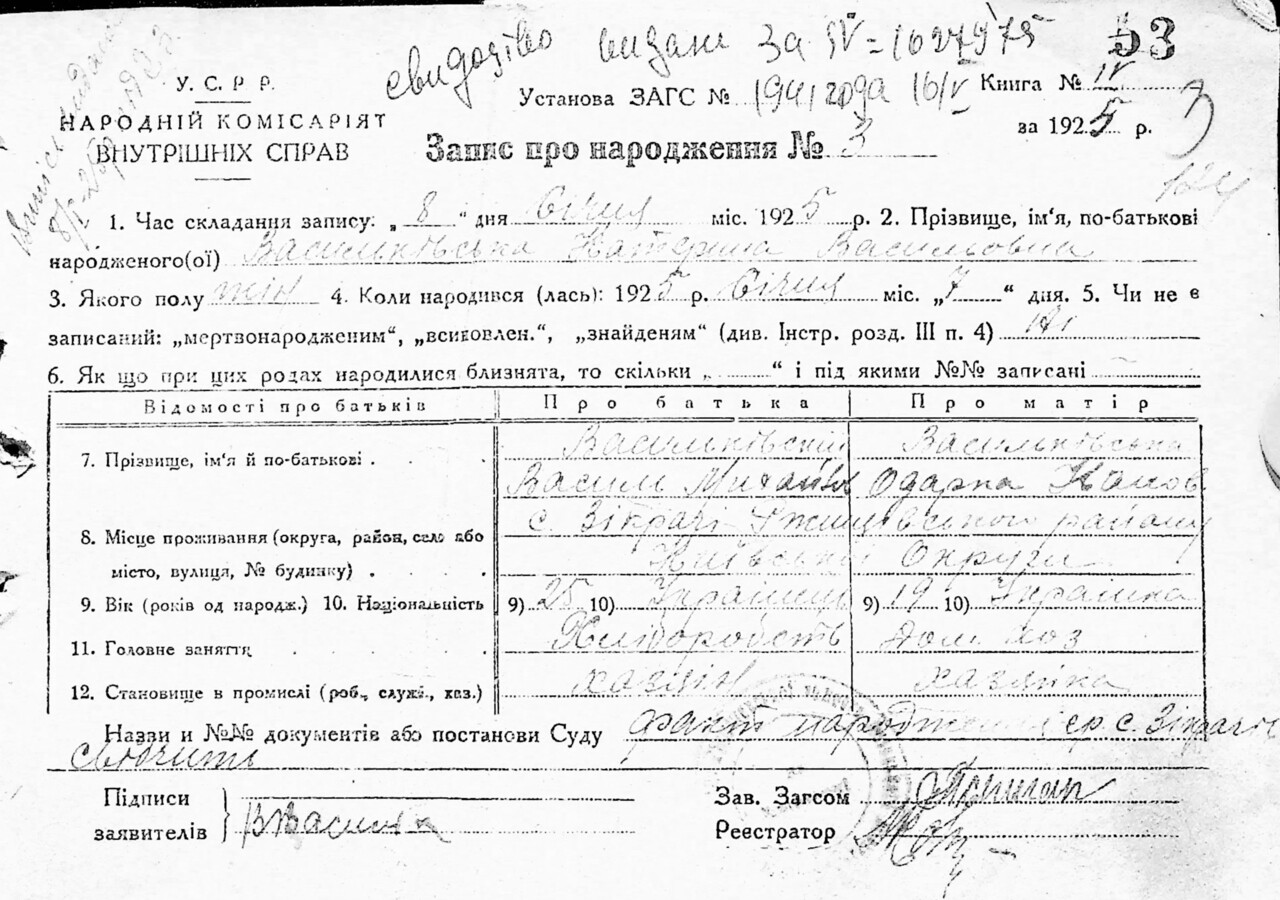 свидоцтво видане За IV=1627975 53
У. С. Р Р.
Установа ЗАГС № 1941 года 16/V Книга № IV
НАРОДНІЙ КОМІСАРІЯТ
ВНУТРІШНІХ СПРАВ
за 1925 р.
Запис про народження № 3
1. Час складання запису: „8“ дня Січня міс. 1925 р. 2. Прізвище, ім'я, по-батькові
народженого(ої) Васильківська Катерина Васильовна
3. Якого полу жін 4. Коли народився (лась): 1925 р. Січня міс. „7“ дня. 5. Чи не є
записаний: „мертвонародженим“, „всиновлен.“, „знайденям“ (див. Інстр. розд. III п. 4) Ні
6. Як що при цих родах народилися близнята, то скільки „ “ і під якими №№ записані
Відомості про батьків Про батька Про матір
7. Прізвище, ім'я й по-батькові . . . Васильківскій Васильківська
Васили Михайлов Одарка
8. Місце проживання (округа, район, село або
місто, вулиця, № будинку) . .
с. Зікрачі Ржищівського району
Київської Округи
9. Вік (років од народж.) 10. Національність 9) 25 10) Українець 9) 19 10) Українка
11. Головне заняття . . . . Хлібороб Дом. хоз
12. Становище в промислі (роб., служ., хаз.) хазяїн хазяйка
Назви и №№ документів або постанови Суду факт народження с. Зікрачі
свідчить
Підписи
заявителів
Зав. Загсом
Реєстратор